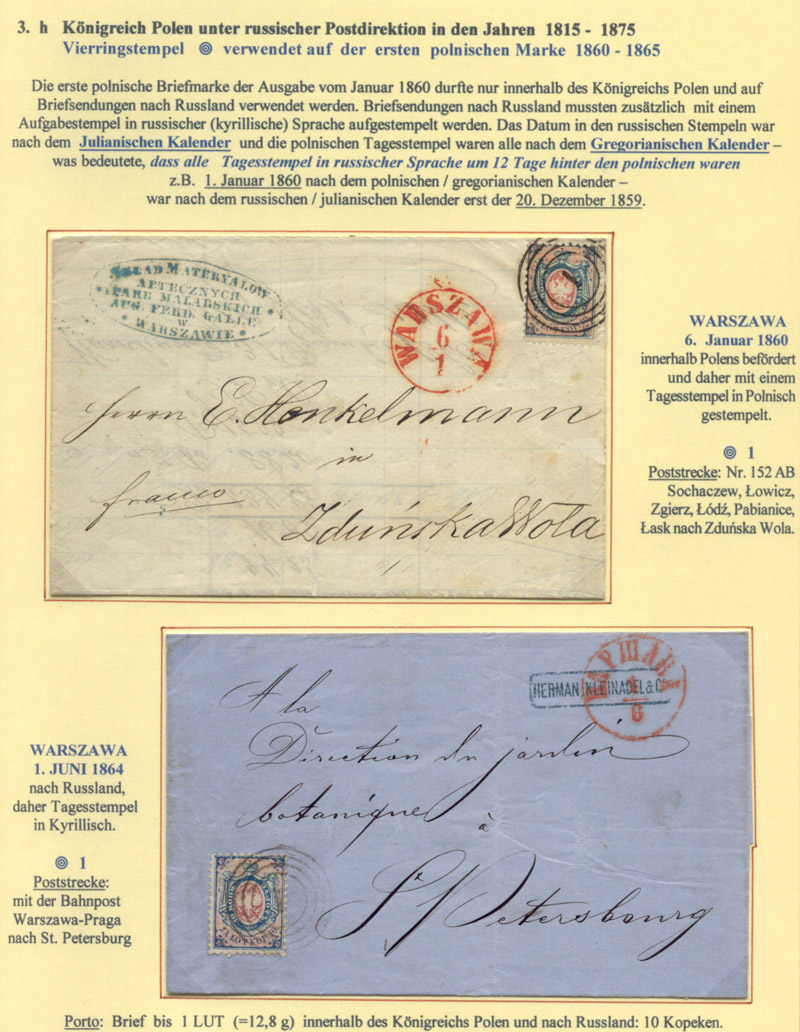 3. h Königreich Polen unter russischer Postdirektion in den Jahren 1815 - 1875
Vierringstempel verwendet auf der ersten polnischen Marke 1860 - 1865
Die erste polnische Briefmarke der Ausgabe vom Januar 1860 durfte nur innerhalb des Königreichs Polen und auf
Briefsendungen nach Russland verwendet werden. Briefsendungen nach Russland mussten zusätzlich mit einem
Aufgabestempel in russischer (kyrillische) Sprache aufgestempelt werden. Das Datum in den russischen Stempeln war
nach dem Julianischen Kalender und die polnischen Tagesstempel waren alle nach dem Gregorianischen Kalender –
was bedeutete, dass alle Tagesstempel in russischer Sprache um 12 Tage hinter den polnischen waren
z.B. 1. Januar 1860 nach dem polnischen / gregorianischen Kalender –
war nach dem russischen / julianischen Kalender erst der 20. Dezember 1859.
SKŁAD MATERYAŁOW
APTECZNYCH
FARB MALARSKICH
AUG. FERD. GALLE
W
WARSZAWIE
WARSZAWA
6
1
1
Herrn E. Henkelmann
in
franco
Zduńska Wola
WARSZAWA
6. Januar 1860
innerhalb Polens befördert
und daher mit einem
Tagesstempel in Polnisch
gestempelt.
1
Poststrecke: Nr. 152 AB
Sochaczew, Łowicz,
Zgierz, Łódź, Pabianice,
Łask nach Zduńska Wola.
HERMAN KLEINADEL & Co
ВАРШАВА
1
6
A la
Direction du jardin
botanique à
St Petersbourg
ZA ŁOT KOP. 10
WARSZAWA
1. JUNI 1864
nach Russland,
daher Tagesstempel
in Kyrillisch.
1
Poststrecke:
mit der Bahnpost
Warszawa-Praga
nach St. Petersburg
Porto: Brief bis 1 LUT (=12,8 g) innerhalb des Königreichs Polen und nach Russland: 10 Kopeken.